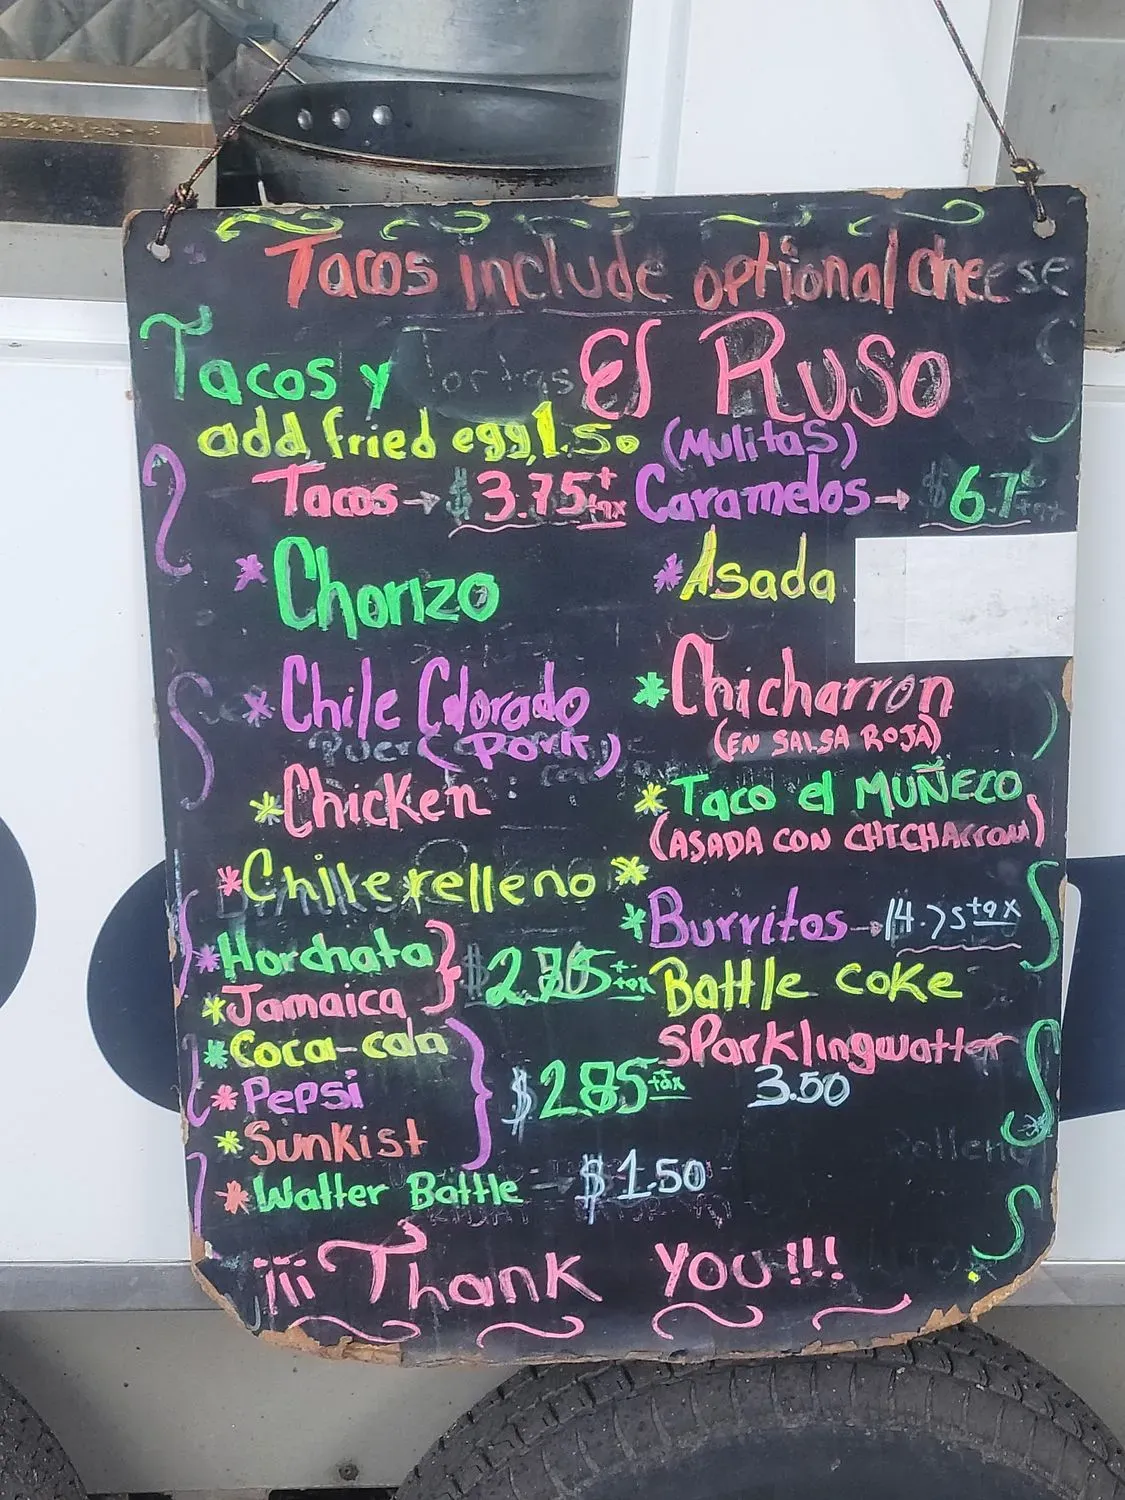 Tacos include optional cheese
Tacos y Tortas El Ruso
add fried egg 1.50 (Mulitas)
Tacos → $3.75 + tax Caramelos → $6.75
* Chorizo * Asada
* Chile Colorado * Chicharron
(Pork) (EN SALSA ROJA)
* Chicken * Taco el MUÑECO
(ASADA CON CHICHARRON)
* Chille relleno *
* Burritos → 14.75 + tax
* Horchata } $2.75 + tax Battle coke
* Jamaica
* Coca-cola } $2.85 + tax Sparklingwatter
* Pepsi 3.50
* Sunkist
* Walter Battle - $1.50
¡¡¡Thank you!!!